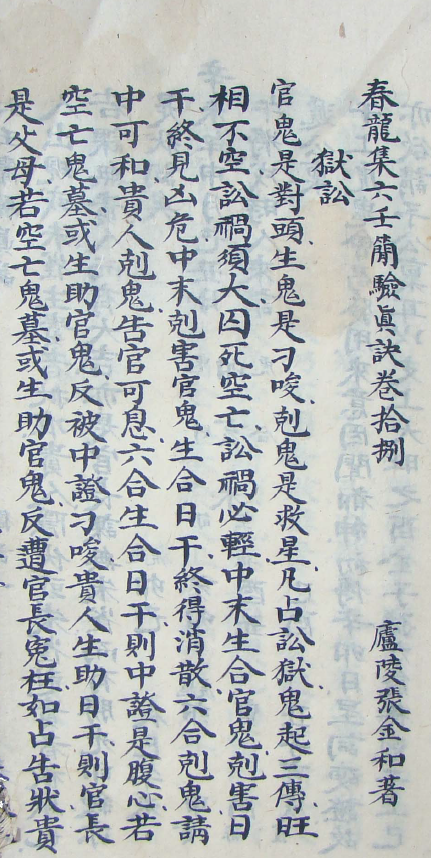 春龍集六壬簡驗眞訣卷拾捌 廬陵張金和著
獄訟
官鬼是對頭生鬼是刁唆剋鬼是救星凡占訟獄鬼起三傳旺
相不空訟禍須大囚死空亡訟禍必輕中末生合官鬼剋害日
干終見凶危中末剋害官鬼生合日干終得消散六合剋鬼講
中可和貴人剋鬼告官可息六合生合日干則中證是腹心若
空亡鬼墓或生助官鬼反被中證刁唆貴人生助日干則官長
是父母若空亡鬼墓或生助官鬼反遭官長寃枉如占告狀貴